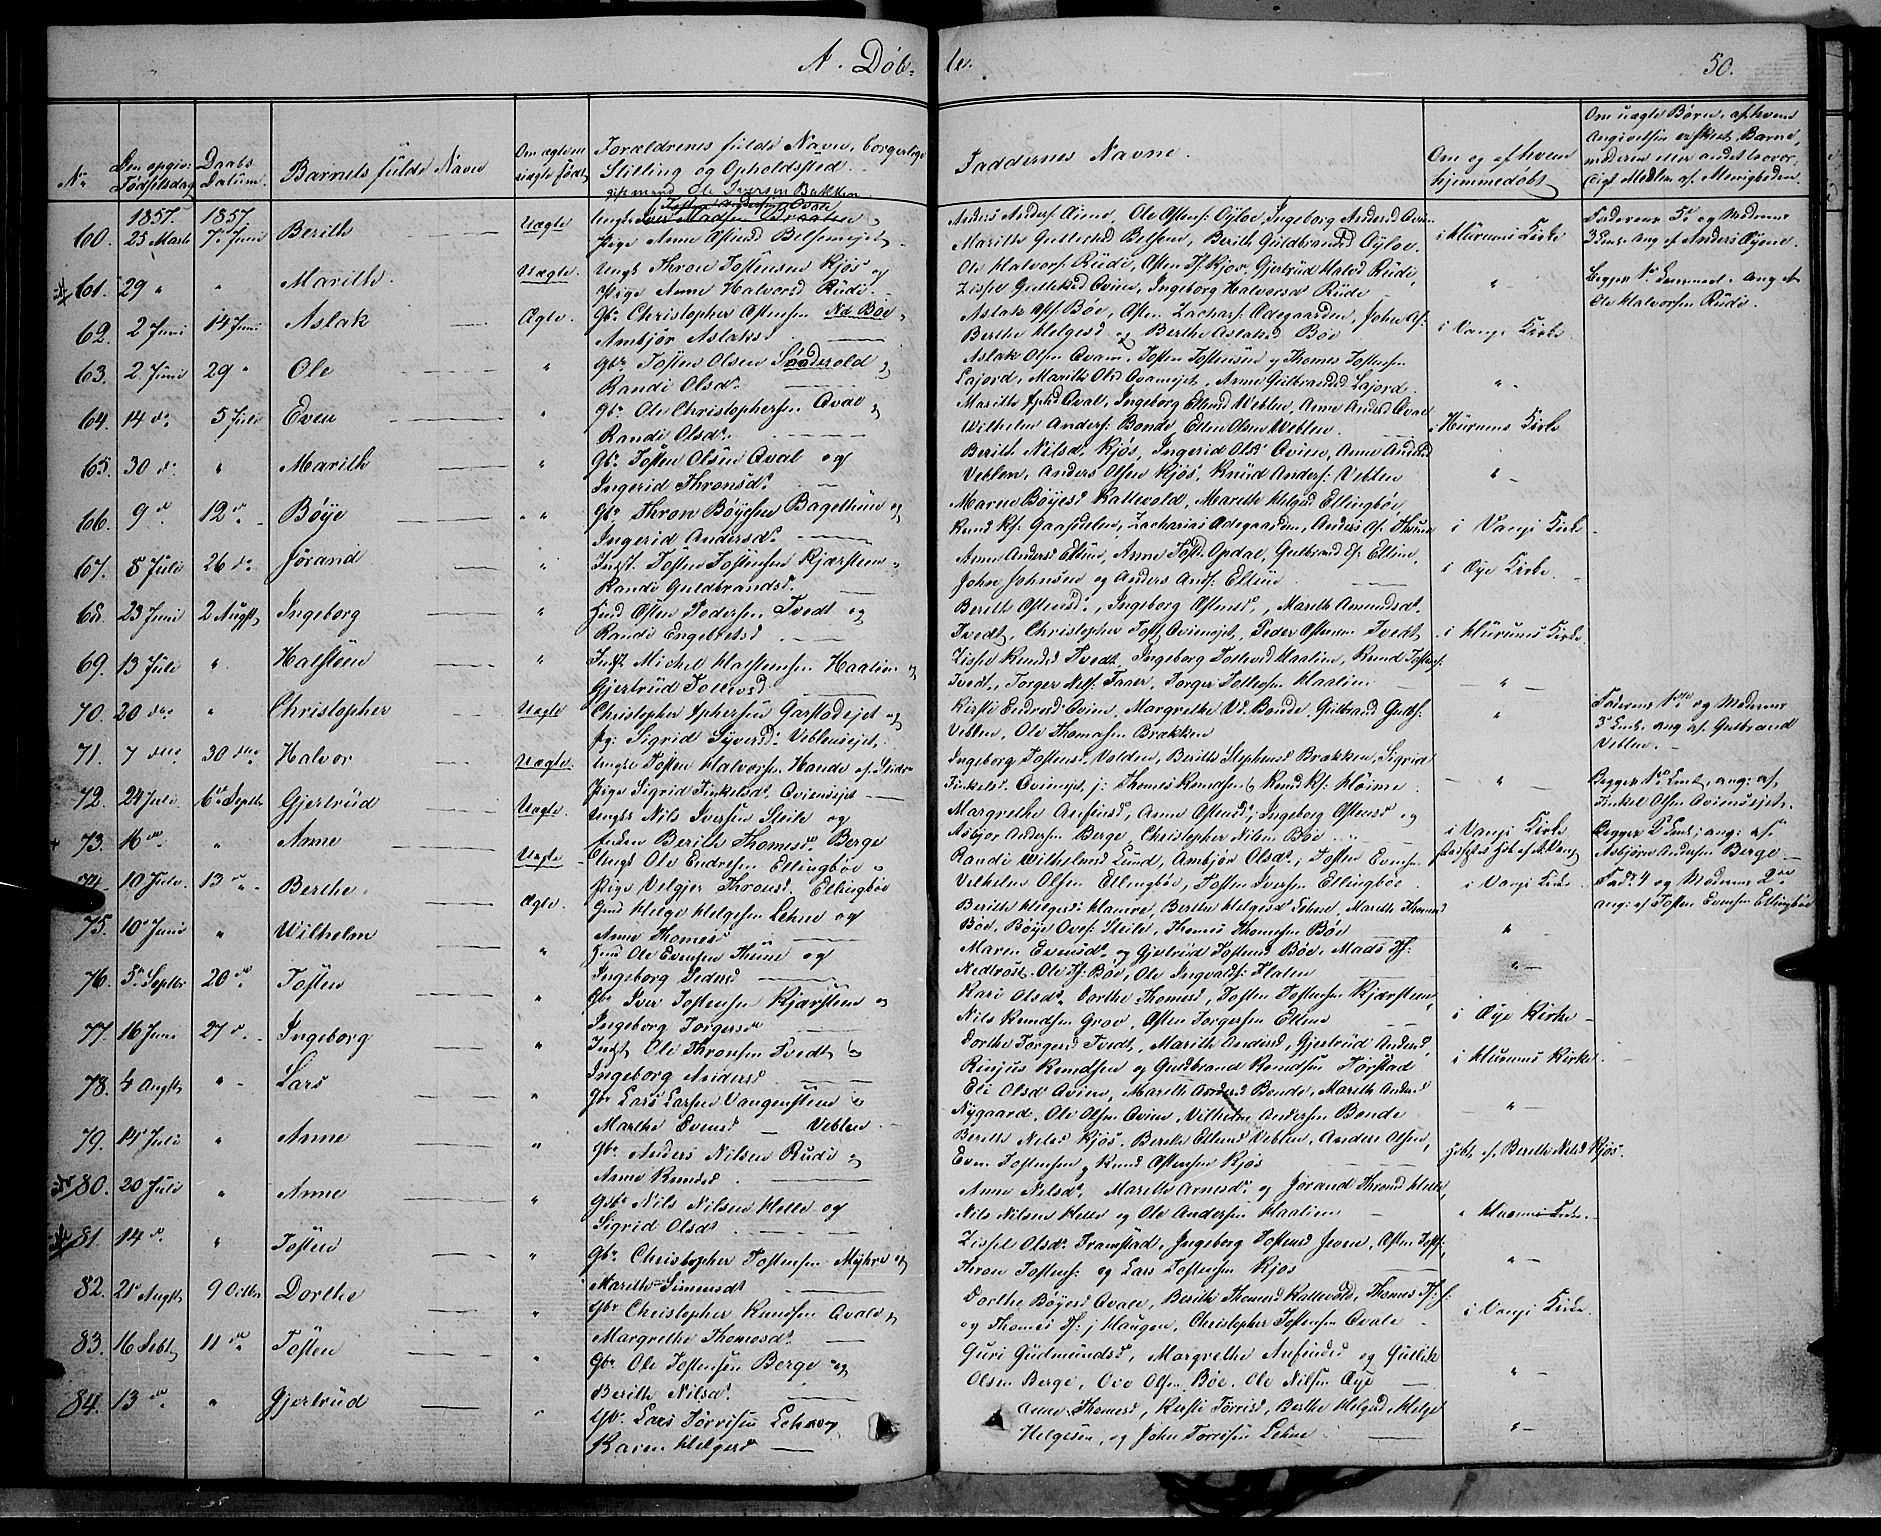 A. Døb= te.
50.
No
Den opgiv: Fødselsdag
Daabs Datum
Barnets fulde Navn
Om ægte el uægte født
Forældrenes fulde Navn, borgerlige Stilling og Opholdssted
Faddernes Navne.
Om og af hvem hjemmedøbt
Om uægte Børn, af hvem
Angivelsen er skeet, Barne,
1857. 1857.
gift mand Ole Iversen Bakken
60. 25 Marts 7 Juni Berith Uægte
Pige Anne Ostensd
Anders Anders: Øine, Ole Ostens: Øyloe, Ingeborg Andersd
Marith Guttormsd Belsen, Berith Guldbrandsd Øyloe,
i Hurums Kirke
Faderens 5te og Moderens
3 Leierm. ang af Anders Øyene.
61. 29 " " Marith Uægte Ungk Thron Tostensen Kjøs og
Pige Anne Halvorsd Rudi
Ole Halvors: Rudi, Osten Ts: Kjøs, Gjertrud Halvd Rudi,
Zissel Gulleksd Øvien, Ingeborg Halvorsd Rudi
Begges 1ste Leiermaal. Ang af
Ole Halvorsen Rudi.
62. 2 Juni 14 Juni Aslak Ægte. Gbr. Christopher Ostensen Nd. Bøe
Ambjør Aslaksd
Aslak Osts: Bøe, Osten Zachars: Ødegaarden, John As:
Berthe Helgesd og Berthe Aslaksd Bøe
i Vangs Kirke
63. 2 Juni 29 " Ole " Gbr. Tosten Olsen Sparevold og
Randi Olsdr
Aslak Olsen Qvam, Tosten Tostensen og Thomas Tostensen
Lajord, Marith Olsd Qvamejet, Anne Gulbrandsd Lajord.
64. 14 do 5 Juli Even " Gbr. Ole Christophersen Qvale og
Randi Olsdr.
Marith Ophd Qvale, Ingeborg Ellend Weblen, Anne Andsd Qvale
Wilhelm Anders: Bonde, Ellen Olsen Weblen.
Hurums Kirke
65. 30 do " Marith " Gbr. Tosten Olsen Qvale og
Ingerid Thronsdr.
Berith Nilsd. Kjøs, Ingerid Olsd Øvien, Anne Andsd
Veblen, Anders Olsen Kjøs, Knud Anders: Veblen
66. 9 d. 12 d. Bøye " Gbr. Thron Bøyesen Bagethun og
Ingerid Andersdr.
Maren Bøyesd Kattevold, Marith Helgsd Ellingbøe,
Knud Ks: Gaasedelen, Zacharias Ødegaarden, Anders As: Thune
i Vangs Kirke
67. 8 Juli 26 do Jørand " Indst. Tosten Tostensen Kjærstein
Randi Guldbrandsd.
Anne Andersd Eltun, Anne Tostd Opdal, Gulbrand Es: Eltun,
John Johnsen og Anders Ands: Eltun
i Øye Kirke.
68. 23 Juni 2 Augst Ingeborg " Huusmd Osten Pedersen Tvedt og
Randi Engebretsd
Berith Ostensdr., Ingeborg Ostensdr., Marith Amundsdr.
Tvedt, Christopher Tosts Øvienejet, Peder Ostensen Tvedt
i Hurums Kirke
69. 13 Juli " Halsten " Indst Michel Halstensen Haalien og
Gjertrud Tollevsd
Zissel Knudsd Tvedt, Ingeborg Tollevsd Haalien, Knud Tostens:
Tvedt, Torger Nils: Faaer, Torger Tollevsen Haalien
70. 20 do " Christopher Uægte Christopher Ophersen Garstadejet og
Pg: Sigrid Syversdr. Veblensejet.
Kirsti Endresd Øvien, Margrethe Vd. Bonde, Gulbrand Guds:
Veblen, Ole Thomasen Brækken
Faderens 1ste og Moderens
3die Leierm. ang af Gulbrand
Veblen.
71. 7 do 30 do Halvor Uægte. Ungk Tosten Halvorsen Hande af Slidr
Pige Sigrid Tinkelsdr. Øviensejet
Ingeborg Tostensd Volden, Berith Stephensd Brækken, Sigrid
Tinkelsd. Øvienejet, j: Thomas Knudsen & Knud Ks: Høime
Begges 1ste Leierm. ang: af
Tinkel Olsen Øviensejet.
72. 24 Juli 6 Septbr Gjertrud Uægte. Ungk Nils Iversen Steile og
Enken Berith Thomesdr Berge
Margrethe Anfinsd, Anne Ostensd, Ingeborg Ostensd og
Asbjør Andersen Berge, Christopher Nilsen Bøe
i Vangs Kirke
Begges 2 Leierm; ang: af
Asbjørn Andersen Berge.
73. 16 do " Anne Uægte Ungk Ole Endresen Ellingbøe og
Pige Velgjer Thronsd. Ellingbøe
Randi Wilhelmsd Lund, Ambjør Olsdr, Tosten Evensen
Velhelm Olsen Ellingbøe, Tosten Iversen Ellingbøe
i Vangs Kirke
Fads 4 og Moderens 2den
ang: af Tosten Evensen Ellingbøe
74. 10 Julii 13 " Berthe Ægte. Gmd Helge Helgesen Lehne og
Anne Thomesd
Berith Helgesdr. Hamre, Berthe Helgesdr. Lehne, Marith Thomesd
Bøe, Bøye Oves: Steile, Thomes Thomesen Bøe
75. 10 Juni " Wilhelm " Huusmd Ole Evensen Thune og
Ingeborg Pedersd
Maren Evensdr. og Gjertrud Tostensd Bøe, Mads Ts:
Nedrøst, Ole Ts: Bøe, Ole Ingvalds: Flaten
76. 5 Septbr 20 d. Tosten " Gbr. Iver Tostensen Kjærstein og
Ingeborg Torgersdr
Kari Olsdr., Dorthe Thomesd, Tosten Tostensen Kjærstein,
Nils Knudsen Grov, Osten Torgersen Eltun
i Øye Kirke
77. 16 Juni 27 d. Ingeborg " Indst Ole Thronsen Tvedt &
Ingeborg Andersd
Dorthe Torgersd Tvedt, Marith Andersd, Gjertrud Andersd,
Rinjus Knudsen og Gudbrand Knudsen Tørstad
i Hurums Kirke
78. 4 Augst " Lars " Gbr Lars Larsen Vangensteen &
Marthe Evensd — Veblen
Eli Olsdr Øvien, Marith Andersd Bonde, Marith Andersd
Nygaard, Ole Olsen Øvien, Vilhelm Andersen Bonde
79. 14 Juli " Anne " Gbr. Anders Nilsen Rudi og
Anne Knudsd
Berith Nilsd Kjøs, Berith Ellend Veblen, Anders Olsen,
Even Tostensen og Knud Ostensen Kjøs
Hdbt af Berith Nilsd Kjøs.
80. 20 Juli " Anne " Gbr Nils Nilsen Helle og
Sigrid Olsdr
Anne Nilsdr, Marith Arnesdr. og Jørand Thronsd Helle,
Nils Nilsen Helle og Ole Andersen Haalien
i Hurums Kirke.
81. 14 d. " Tosten " Gbr. Christopher Tostensen Myhre og
Marith Simensdr
Zissel Olsdr. Framstad, Ingeborg Tostensd Jeven, Osten Tosts:
Thron Tostens: og Lars Tostensen Kjøs
82. 21 Augst 9 Octbr Dorthe " Gbr Christopher Knudsen Qvale og
Margrethe Thomesdr.
Dorthe Bøyesd Qvale, Berith Thomesd Kattevold, Thomes Ts:
og Thomes Ts: j Haugen, Christopher Tostensen Qvale
i Vangs Kirke
83. 16 Sebt 11 do Tosten " Gbr. Ole Tostensen Berge og
Berith Nilsdr.
Guri Gudmundsd, Margrethe Anfinsd og Gullik
Olsen Berge, Ove Olsen Bøe, Ole Nilsen Øye
84. 13 do " Gjertrud " Gbr. Lars Torrisen Lehne og
Karen Helgesd
Anne Thomesd, Kirsti Torrisd, Berthe Helgesd, Helge
Helgesen, og John Torrisen Lehne